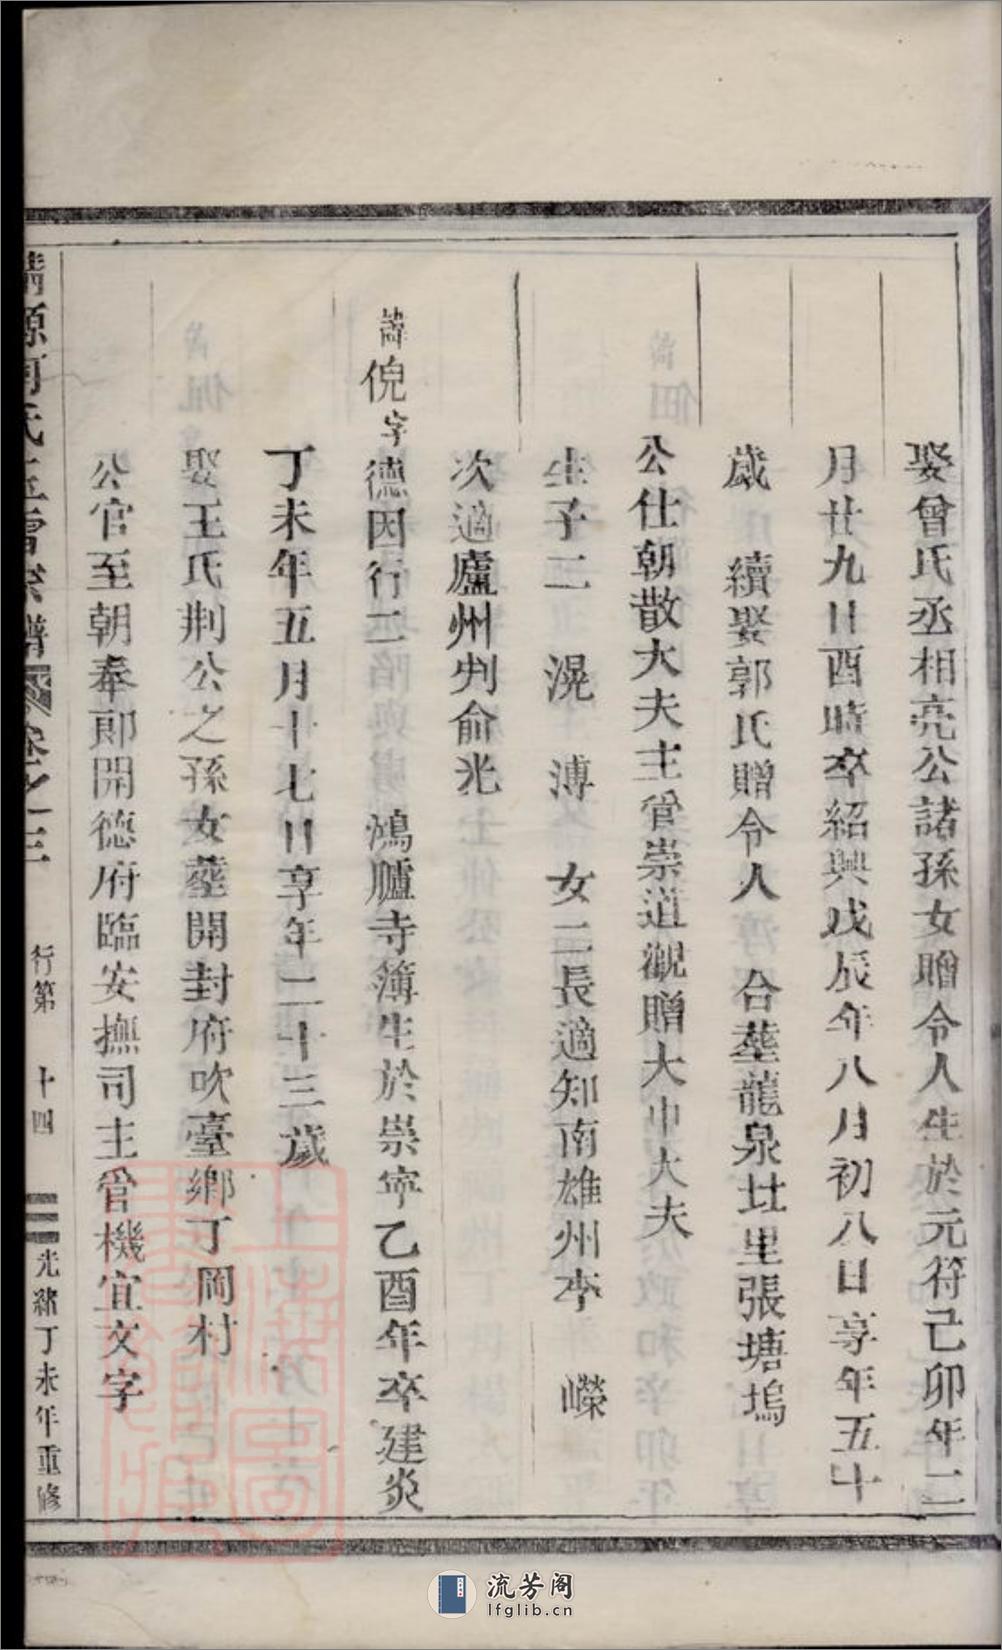 娶曾氏丞相亮公諸孫女贈令人生於元符己卯年二
月廿九日酉時卒紹興戊辰年八月初八日享年五十
歲　續娶郭氏贈令人　合塟龍泉圵里張塘塢
公仕朝散大夫主管崇道觀贈大中大夫
生子二　滉　溥　女二長適知南雄州李　嶸
次適廬州判俞兆
諱倪字德因行二　鴻臚寺簿生於崇寧乙酉年卒建炎
丁未年五月十七日享年二十三歲
娶王氏荆公之孫女塟開封府吹臺鄉丁岡村
公官至朝奉郎開德府臨安撫司主管機宜文字
清源何氏宗譜　卷之三　行第　十四　光緒丁未年重修
流芳阁
lfglib.cn